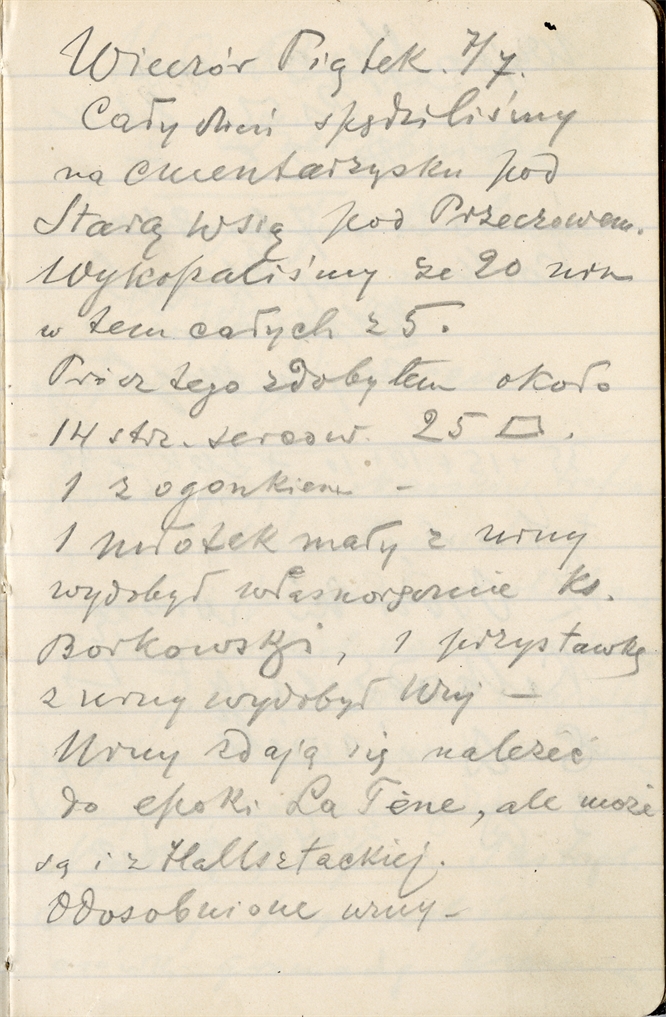 Wieczór Piątek. 7/7.
Cały dzień spędziliśmy
na cmentarzysku pod
Starą wsią pod Przeczowem.
Wykopaliśmy ze 20 urn
w tem całych z 5.
Prócz tego zdobyłem około
14 strz. sercow. 25 ▱.
1 z ogonkiem –
1 młotek mały z urny
wydobył własnoręcznie ks.
Borkowski, 1 przystawkę
z urny wydobył Wuj –
Urny zdają się należeć
do epoki La Tène, ale może
są i z Hallsztackiej.
Odosobnione urny –